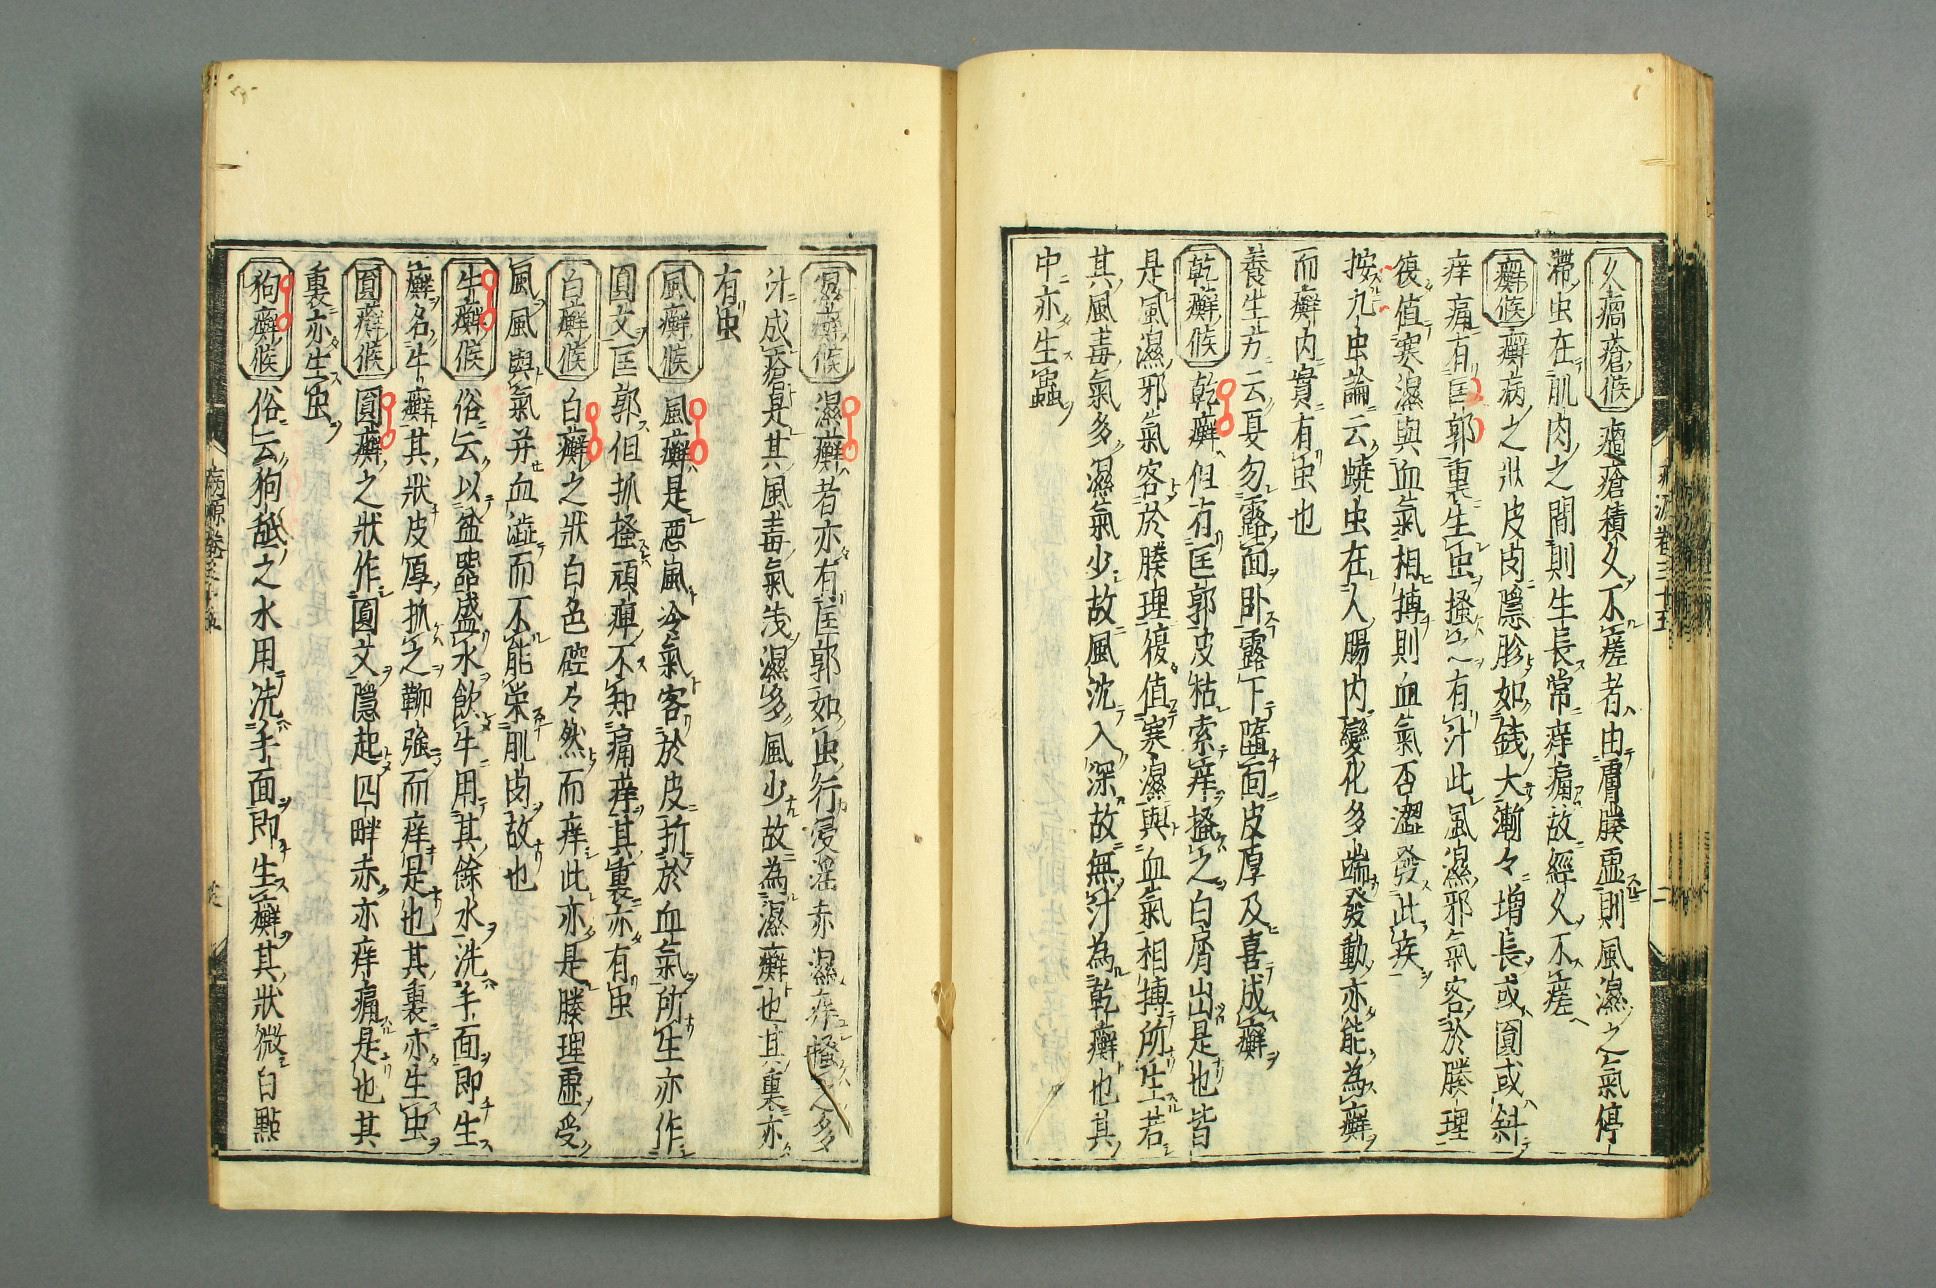 久瘑瘡候 瘑瘡積久不瘥者由膚腠虛則風濕之氣停
滯虫在肌肉之間則生長常痒痛故經久不瘥
癬候 癬病之狀皮肉隱胗如錢大漸々增長或圓或斜
痒痛有匡郭裏生虫搔之有汁此風濕邪氣客於腠理
復值寒濕與血氣相摶則血氣否澀發此疾
按九虫論云蟯虫在人腸内變化多端發動亦能為癬
而癬内實有虫也
養生方云夏勿露面卧露下墮面皮厚及喜成癬
乾癬候 乾癬但有匡郭皮枯索痒搔之白屑出是也皆
是風濕邪氣客於腠理復值寒濕與血氣相摶所生若
其風毒氣多濕氣少故風沈入深故無汁為乾癬也其
中亦生蟲
病源卷三十五 二
濕癬候 濕癬者亦有匡郭如虫行浸淫赤濕痒搔之多
汁成瘡是其風毒氣淺濕多風少故為濕癬也其裏亦
有虫
風癬候 風癬是惡風冷氣客於皮折於血氣所生亦作
圓文匡郭但抓搔頑痺不知痛痒其裏亦有虫
白癬候 白癬之狀白色硿々然而痒此亦是腠理虛受
風風與氣并血澁而不能栄肌肉故也
牛癬候 俗云以盆器盛水飲牛用其餘水洗手面即生
癬名牛癬其狀皮厚抓之靭強而痒是也其裏亦生虫
圓癬候 圓癬之狀作圓文隱起四畔赤亦痒痛是也其
裏亦生虫
狗癬候 俗云狗舐之水用洗手面即生癬其狀微白點
病源卷三十五